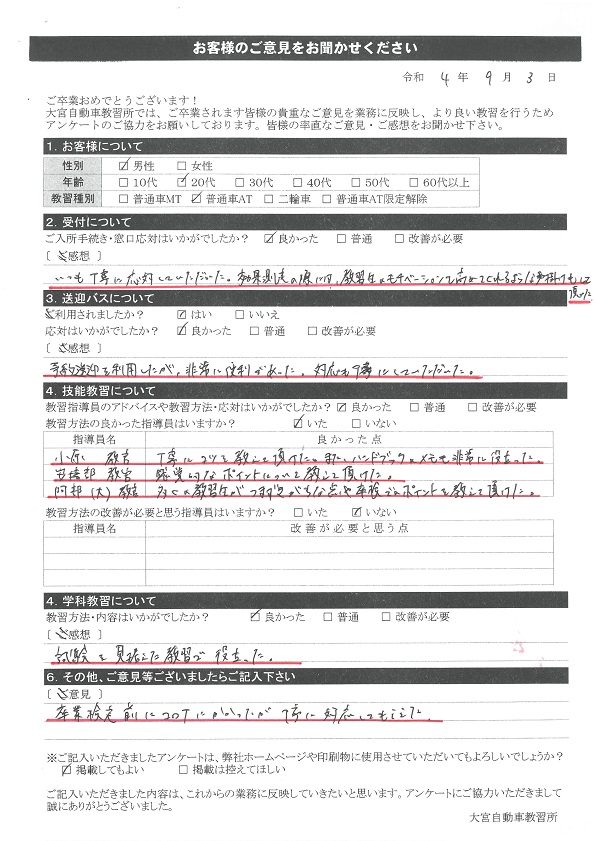 お客様のご意見をお聞かせください
令和 4 年 9 月 3 日
ご卒業おめでとうございます！
大宮自動車教習所では、ご卒業されます皆様の貴重なご意見を業務に反映し、より良い教習を行うため
アンケートのご協力をお願いしております。皆様の率直なご意見・ご感想をお聞かせ下さい。
1. お客様について
性別 ☑ 男性 □ 女性
年齢 □ 10代 ☑ 20代 □ 30代 □ 40代 □ 50代 □ 60代以上
教習種別 □ 普通車MT ☑ 普通車AT □ 二輪車 □ 普通車AT限定解除
2. 受付について
ご入所手続き・窓口応対はいかがでしたか？ ☑ 良かった □ 普通 □ 改善が必要
[ ご感想 ]
いつも丁寧に応対していただいた。効果測定の際には、教習生のモチベーションを高めてくれるような声掛けもして
頂けた
3. 送迎バスについて
ご利用されましたか？ ☑ はい □ いいえ
応対はいかがでしたか？ ☑ 良かった □ 普通 □ 改善が必要
[ ご感想 ]
予約送迎を利用したが、非常に便利だった。対応も丁寧にしていただいた。
4. 技能教習について
教習指導員のアドバイスや教習方法・応対はいかがでしたか？ ☑ 良かった □ 普通 □ 改善が必要
教習方法の良かった指導員はいますか？ ☑ いた □ いない
指導員名 良かった点
小原 教官 丁寧にコツを教えて頂けた。またハンドブックのメモも非常に役立った。
教官 なポイントについて教えて頂けた。
阿部(大) 教官 多くの教習生がつまずきがちな点や卒検でのポイントを教えて頂けた。
教習方法の改善が必要と思う指導員はいますか？ □ いた ☑ いない
指導員名 改善が必要と思う点
4. 学科教習について
教習方法・内容はいかがでしたか？ ☑ 良かった □ 普通 □ 改善が必要
[ ご感想 ]
試験を見据えた教習で役立った。
6. その他、ご意見等ございましたらご記入下さい
[ ご意見 ]
卒業検定前にコロナにかかったが丁寧に対応してもらえた。
※ご記入いただきましたアンケートは、弊社ホームページや印刷物に使用させていただいてもよろしいでしょうか？
☑ 掲載してもよい □ 掲載は控えてほしい
ご記入いただきました内容は、これからの業務に反映していきたいと思います。アンケートにご協力いただきまして
誠にありがとうございました。
大宮自動車教習所